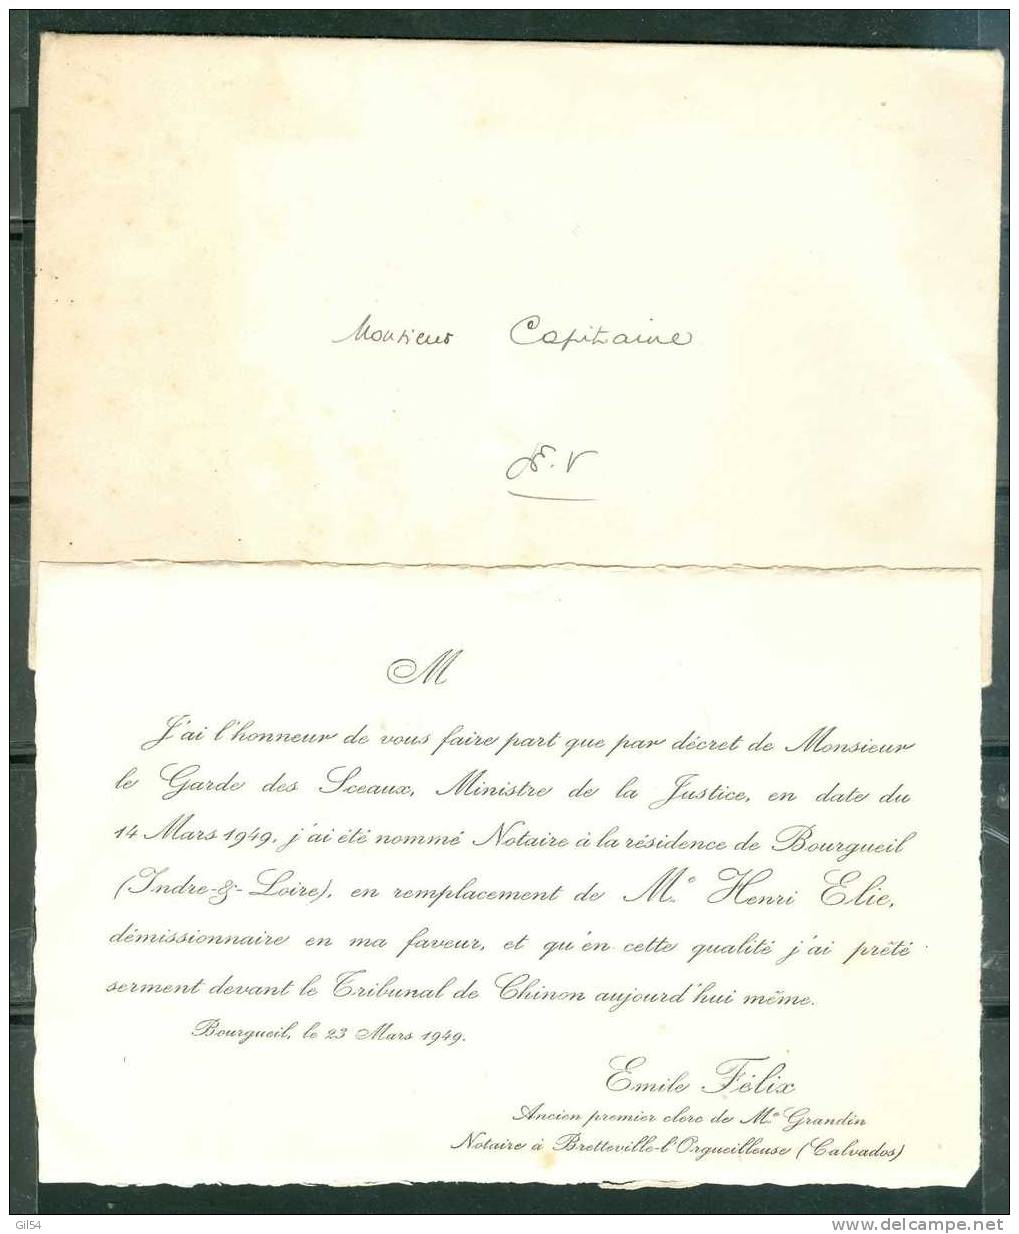 Monsieur Capitaine
E.V
M
J'ai l'honneur de vous faire part que par décret de Monsieur
le Garde des Sceaux, Ministre de la Justice, en date du
14 Mars 1949, j'ai été nommé Notaire à la résidence de Bourgueil
(Indre-&-Loire), en remplacement de Me Henri Elie,
démissionnaire en ma faveur, et qu'en cette qualité j'ai prêté
serment devant le Tribunal de Chinon aujourd'hui même.
Bourgueil, le 23 Mars 1949.
Emile Félix
Ancien premier clerc de Me Grandin
Notaire à Bretteville-l'Orgueilleuse (Calvados)
Gil54
www.delcampe.net